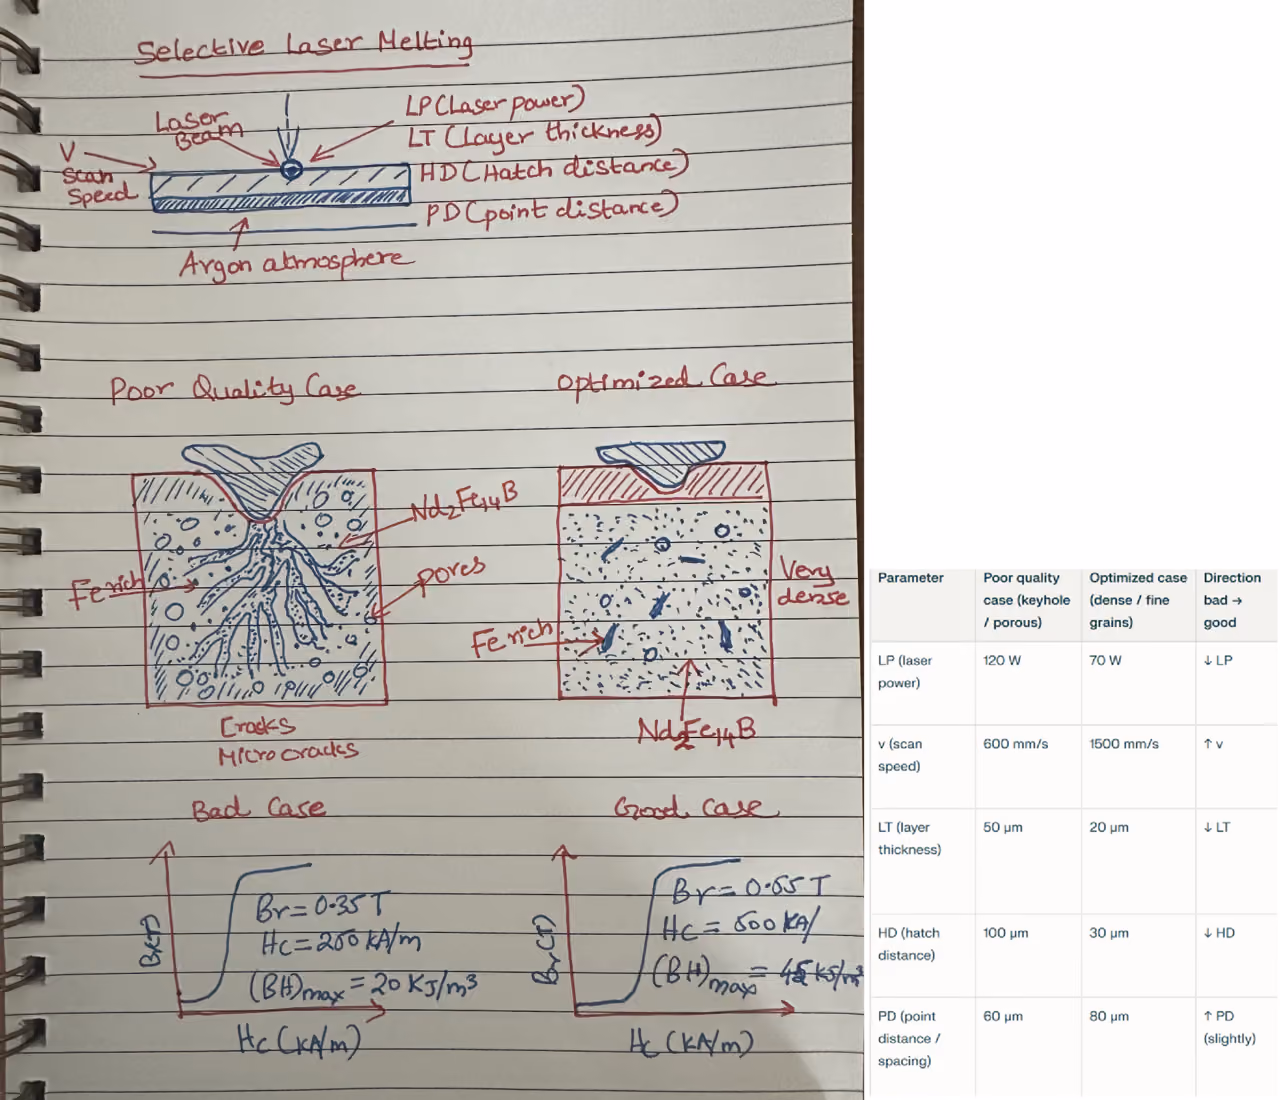 Selective Laser Melting
Laser
Beam
V
Scan
Speed
LP(Laser power)
LT (Layer thickness)
HD (Hatch distance)
PD (point distance)
Argon atmosphere
Poor Quality Case
Nd2Fe14B
Fe rich
pores
Cracks
Microcracks
Optimized Case
Very
dense
Fe rich
Nd2Fe14B
Bad Case
Br(T)
Br = 0.35 T
Hc = 250 KA/m
(BH)max = 20 KJ/m3
Hc (KA/m)
Good Case
Br(T)
Br = 0.65 T
Hc = 500 KA/
(BH)max = 45 KJ/m3
Hc (KA/m)
Parameter
Poor quality
case (keyhole
/ porous)
Optimized case
(dense / fine
grains)
Direction
bad →
good
LP (laser
power)
120 W
70 W
↓ LP
v (scan
speed)
600 mm/s
1500 mm/s
↑ v
LT (layer
thickness)
50 µm
20 µm
↓ LT
HD (hatch
distance)
100 µm
30 µm
↓ HD
PD (point
distance /
spacing)
60 µm
80 µm
↑ PD
(slightly)